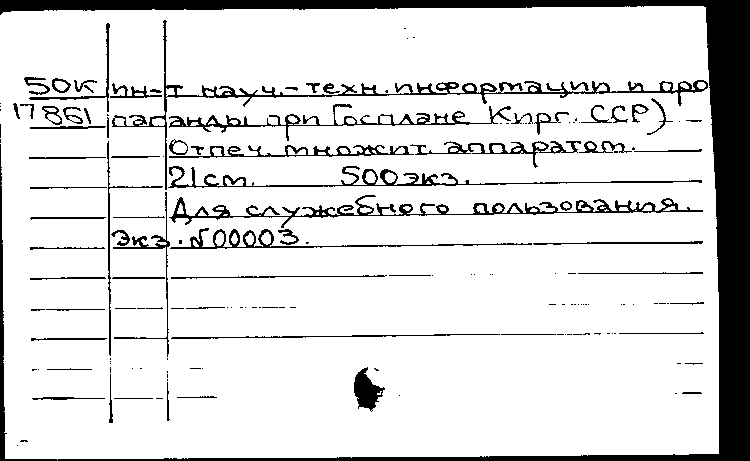 50К ин-т науч.-техн. информации и про
17861 паганды при Госплане Кирг. ССР)
Отпеч. множит. аппаратом.
21см. 500экз.
Для служебного пользования.
Экз. №00003.